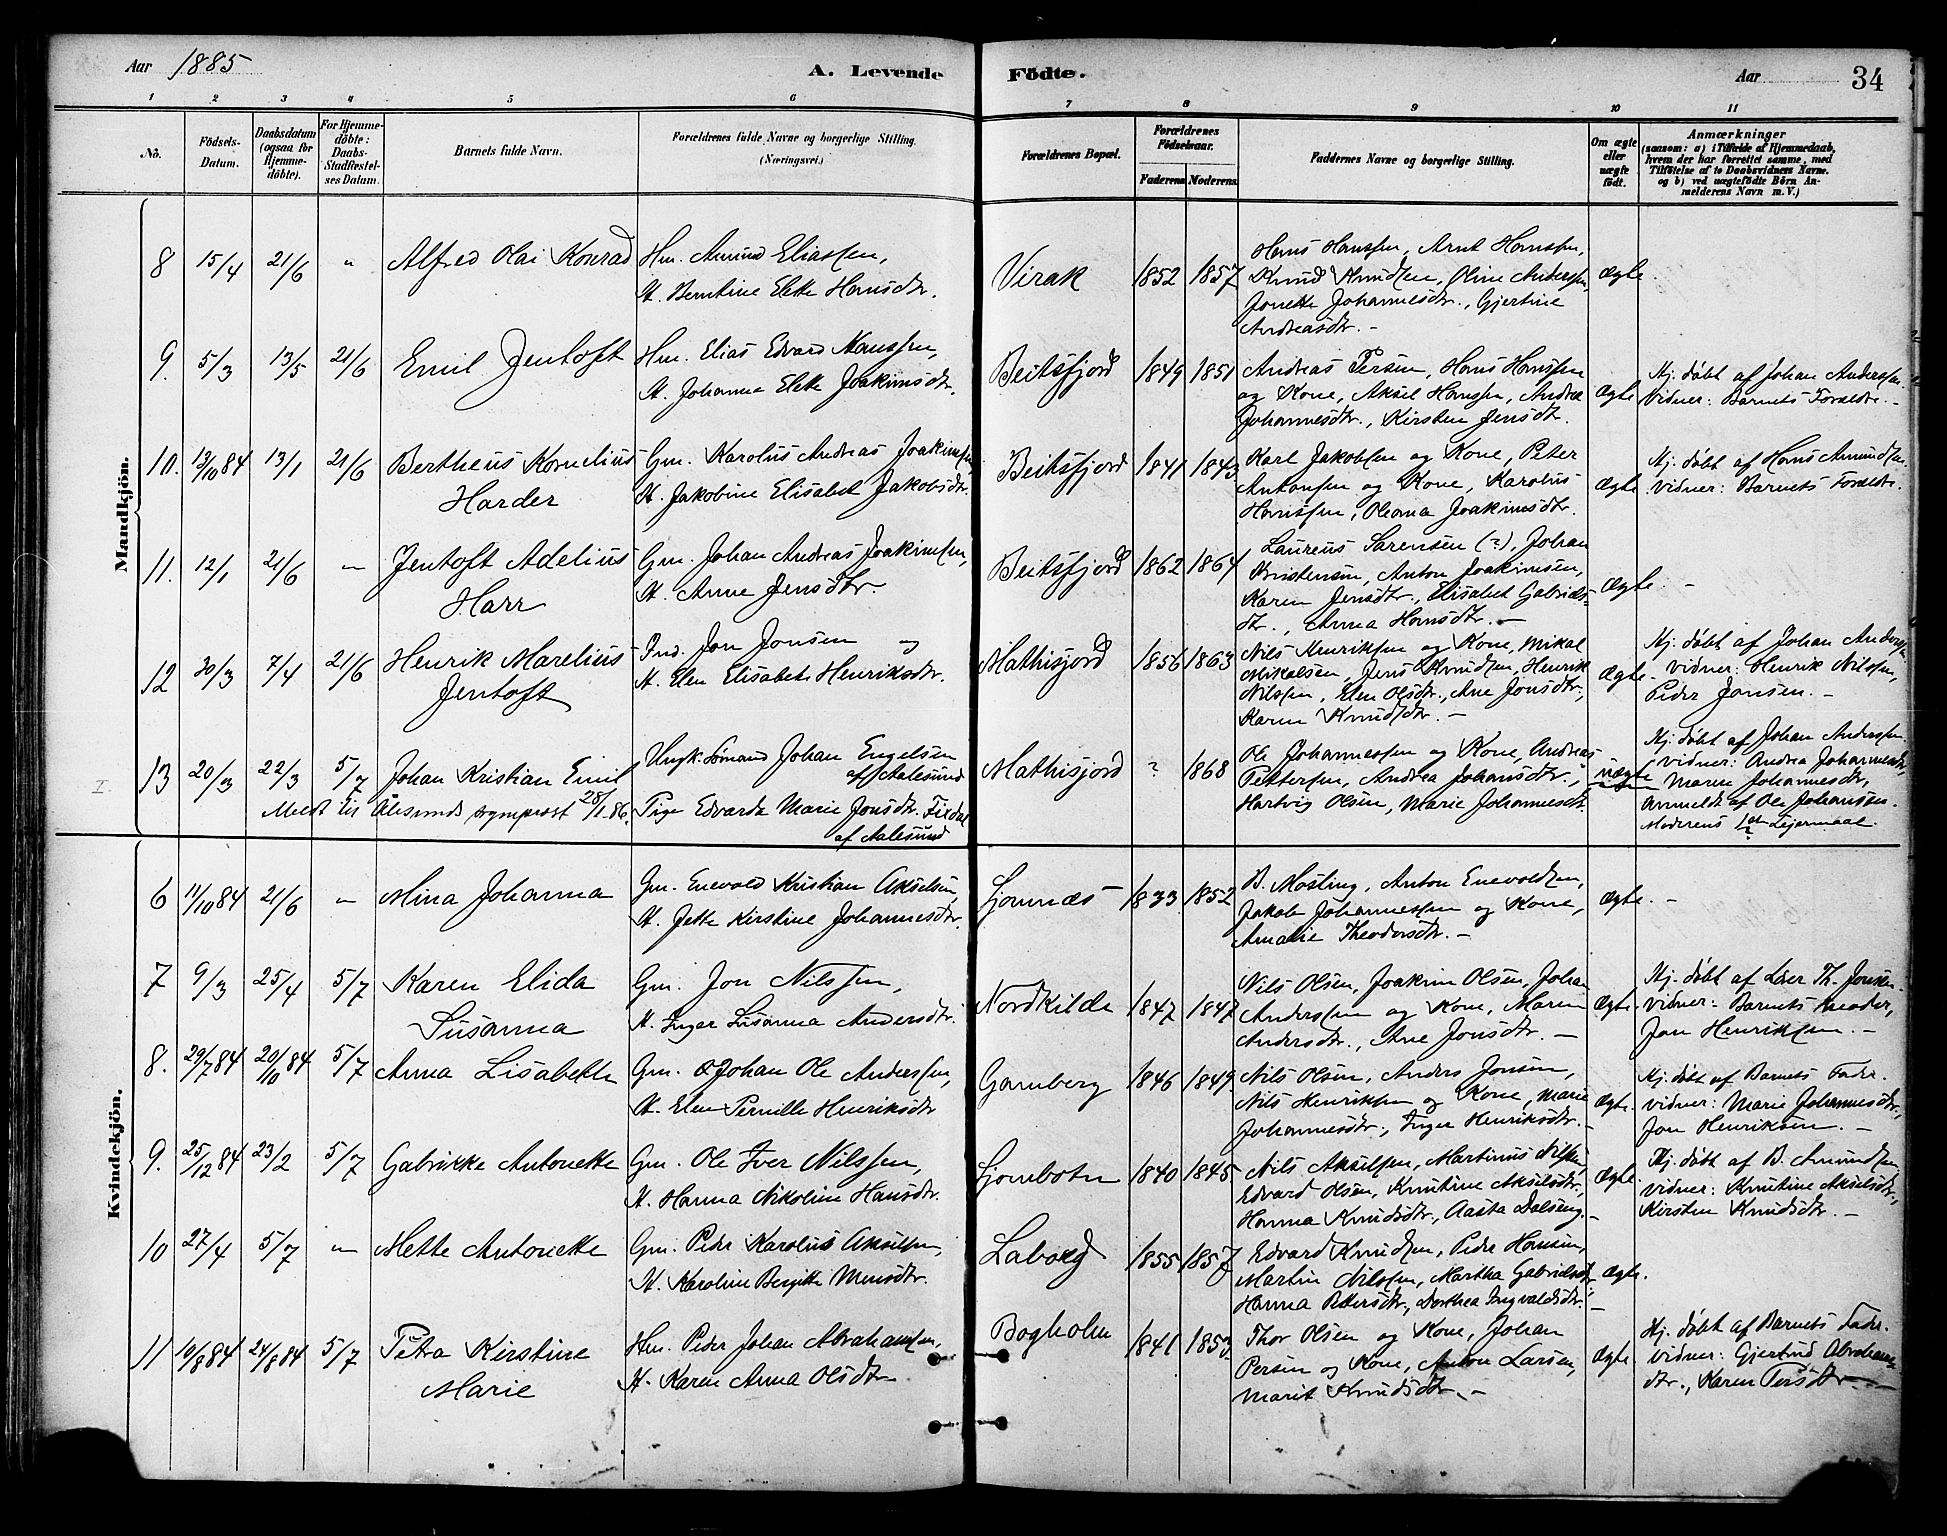 Aar 1885
A. Levende
Födte.
Aar
34
1 2 3 4 5 6 7 8 9 10 11
No.
Födsels-
Datum.
Daabsdatum
(ogsaa for
Hjemme-
döbte).
For Hjemme-
döbte:
Daabs-
Stadfæstel-
ses Datum.
Barnets fulde Navn.
Forældrenes fulde Navne og borgerlige Stilling.
(Næringsvei.)
Forældrenes Bopæl.
Forældrenes
Födselsaar.
Faderens Moderens
Faddernes Navne og borgerlige Stilling.
Om ægte
eller
uægte
födt.
Anmærkninger
(saasom: a) i Tilfælde af Hjemmedaab,
hvem der har forrettet samme, med
Tilföielse af to Daabsvidners Navne.
og b) ved uægtefödte Börn An-
melderens Navn m. V.)
Mandkjön.
8 15/4 21/6 " Alfred Olai Konrad
Hm. Amund Eliassen,
H. Berntine Elette Hansdtr.
Virak 1852 1857
Hans Hanssen, Arnt Hanssen,
Knud Knudsen, Oline Anderssen,
Jonette Johannesdtr., Gjertine
Andreasdtr. -
ægte
9. 5/3 13/5 21/6 Emil Jentoft
Hm. Elias Edvard Hanssen,
H. Johanna Elette Joakimsdtr.
Beitsfjord 1849 1851
Andreas Persen, Hans Hanssen
og Kone, Aksel Hanssen, Andrea
Johannesdtr., Kirsten Jensdtr.
ægte
Hj. döbt af Johan Anderssen.
Vidner: Barnets Forældre. -
10. 13/10 84 13/1 21/6 Bertheus Kornelius
Harder
Gm. Karolus Andreas Joakimsen
H. Jakobine Elisabet Jakobsdtr.
Beitsfjord 1841 1843
Karl Jakobsen og Kone, Peter
Antonsen og Kone, Karolus
Hanssen, Oleana Joakimsdtr.
ægte
Hj. döbt af Hans Amundsen.
Vidner: Barnets Forældre.
11. 12/1 21/6 — Jentoft Adelius
Harr
Gm. Johan Andreas Joakimsen,
H. Anne Jensdtr.
Beitsfjord 1862 1864
Laureus Sørensen (?), Johan
Kristensen, Anton Joakimsen,
Karen Jensdtr., Elisabet Gabriels-
dtr., Anna Hansdtr. -
ægte. -
12 30/3 7/4 21/6 Henrik Marelius
Jentoft
Ind. Jon Jonsen og
H. Elen Elisabet Henriksdtr.
Mathisjord 1856 1863
Nils Henriksen og Kone, Mikal
Mikalsen, Jens Knudsen, Henrik
Nilssen, Elen Olsdtr., Ane Jonsdtr.,
Karen Knudsdtr. -
ægte
Hj. döbt af Johan Anderssen
Vidner: Henrik Nilssen,
Peder Jonsen. -
I.
13 20/3 22/3 5/7 Johan Kristian Emil
Meldt til Ålesunds sogneprest 28/1 86.
Ungk. Sømand Johan Engelsen
af Aalesund
Pige Edvarda Marie Jonsdtr. Fixdal
af Aalesund
Mathisjord ? 1868
Ole Johannessen og Kone, Andreas
Pettersen, Andrea Johansdtr.,
Hartvig Olsen, Marie Johannesdtr.
uægte
Hj. döbt af Johan Anderssen
Vidner: Andrea Johannesdtr,
Maren Johannesdtr,
anmeldt af Ole Johanssen.
Moderens 1ste Leiermaal.
Kvindekjön.
6 11/10 84 21/6 " Mina Johanna
Gm. Enevold Kristian Akselsen,
H. Jette Kirstine Johannesdtr.
Sjomnæs 1833 1852
B. Mosling, Anton Enevoldsen,
Jakob Johannessen og Kone,
Amalie Theodorsdtr. -
ægte. -
7 9/3 25/4 5/7 Karen Elida
Susanna
Gm. Jon Nilssen,
H. Inger Susanna Andersdtr.
Nordkilde 1847 1847
Nils Olsen, Joakim Olsen, Johan
Anderssen og Kone, Maren
Andersdtr., Ane Jonsdtr. -
ægte
Hj. döbt af Lær Th. Jonsen
Vidner: Barnets Moder,
Jon Henriksen. -
8. 29/7 84 20/10 84 5/7 Anna Lisabette
Gm. Johan Ole Anderssen,
H. Elen Pernille Henriksdtr
Gamberg 1846 1849
Nils Olsen, Anders Jonsen,
Nils Henriksen og Kone, Marie
Johannesdtr., Inger Henriksdtr. -
ægte.
Hj. döbt af Barnets Fader.
Vidner: Marie Johannesdtr.,
Jon Henriksen. -
9. 25/12 84 23/2 5/7 Gabrikke Antonette
Gm. Ole Iver Nilssen,
H. Hanna Nikoline Hansdtr.
Sjombotn 1840 1845
Nils Akselsen, Martinus Nilssen,
Edvard Olsen, Knutine Akselsdtr.,
Hanna Knudsdtr., Aasta Dalseng. -
ægte
Hj. döbt af B. Amundsen
Vidner: Knutine Akselsdtr.,
Kirsten Knudsdtr. -
10 27/4 5/7 " Mette Antonette
Gm. Peder Karolus Akselsen,
H. Karoline Bergitte Monsdtr.
Laberg 1855 1857
Edvard Knudsen, Peder Hansen,
Martin Nilssen, Martha Gabrielsdtr
Hanna Pettersdtr., Dorthea Ingvaldsdtr. -
ægte.
11 10/8 84 24/8 84 5/7 Petra Kirstine
Marie
Hm. Peder Johan Abrahamsen,
H. Karen Anna Olsdtr
Bogholm 1841 1853
Thor Olsen og Kone, Johan
Persen og Kone, Anton Larsen,
Marit Knudsdtr. -
ægte
Hj. döbt af Barnets Fader.
Vidner: Gjertrud Abrahams-
dtr., Karen Persdtr. -